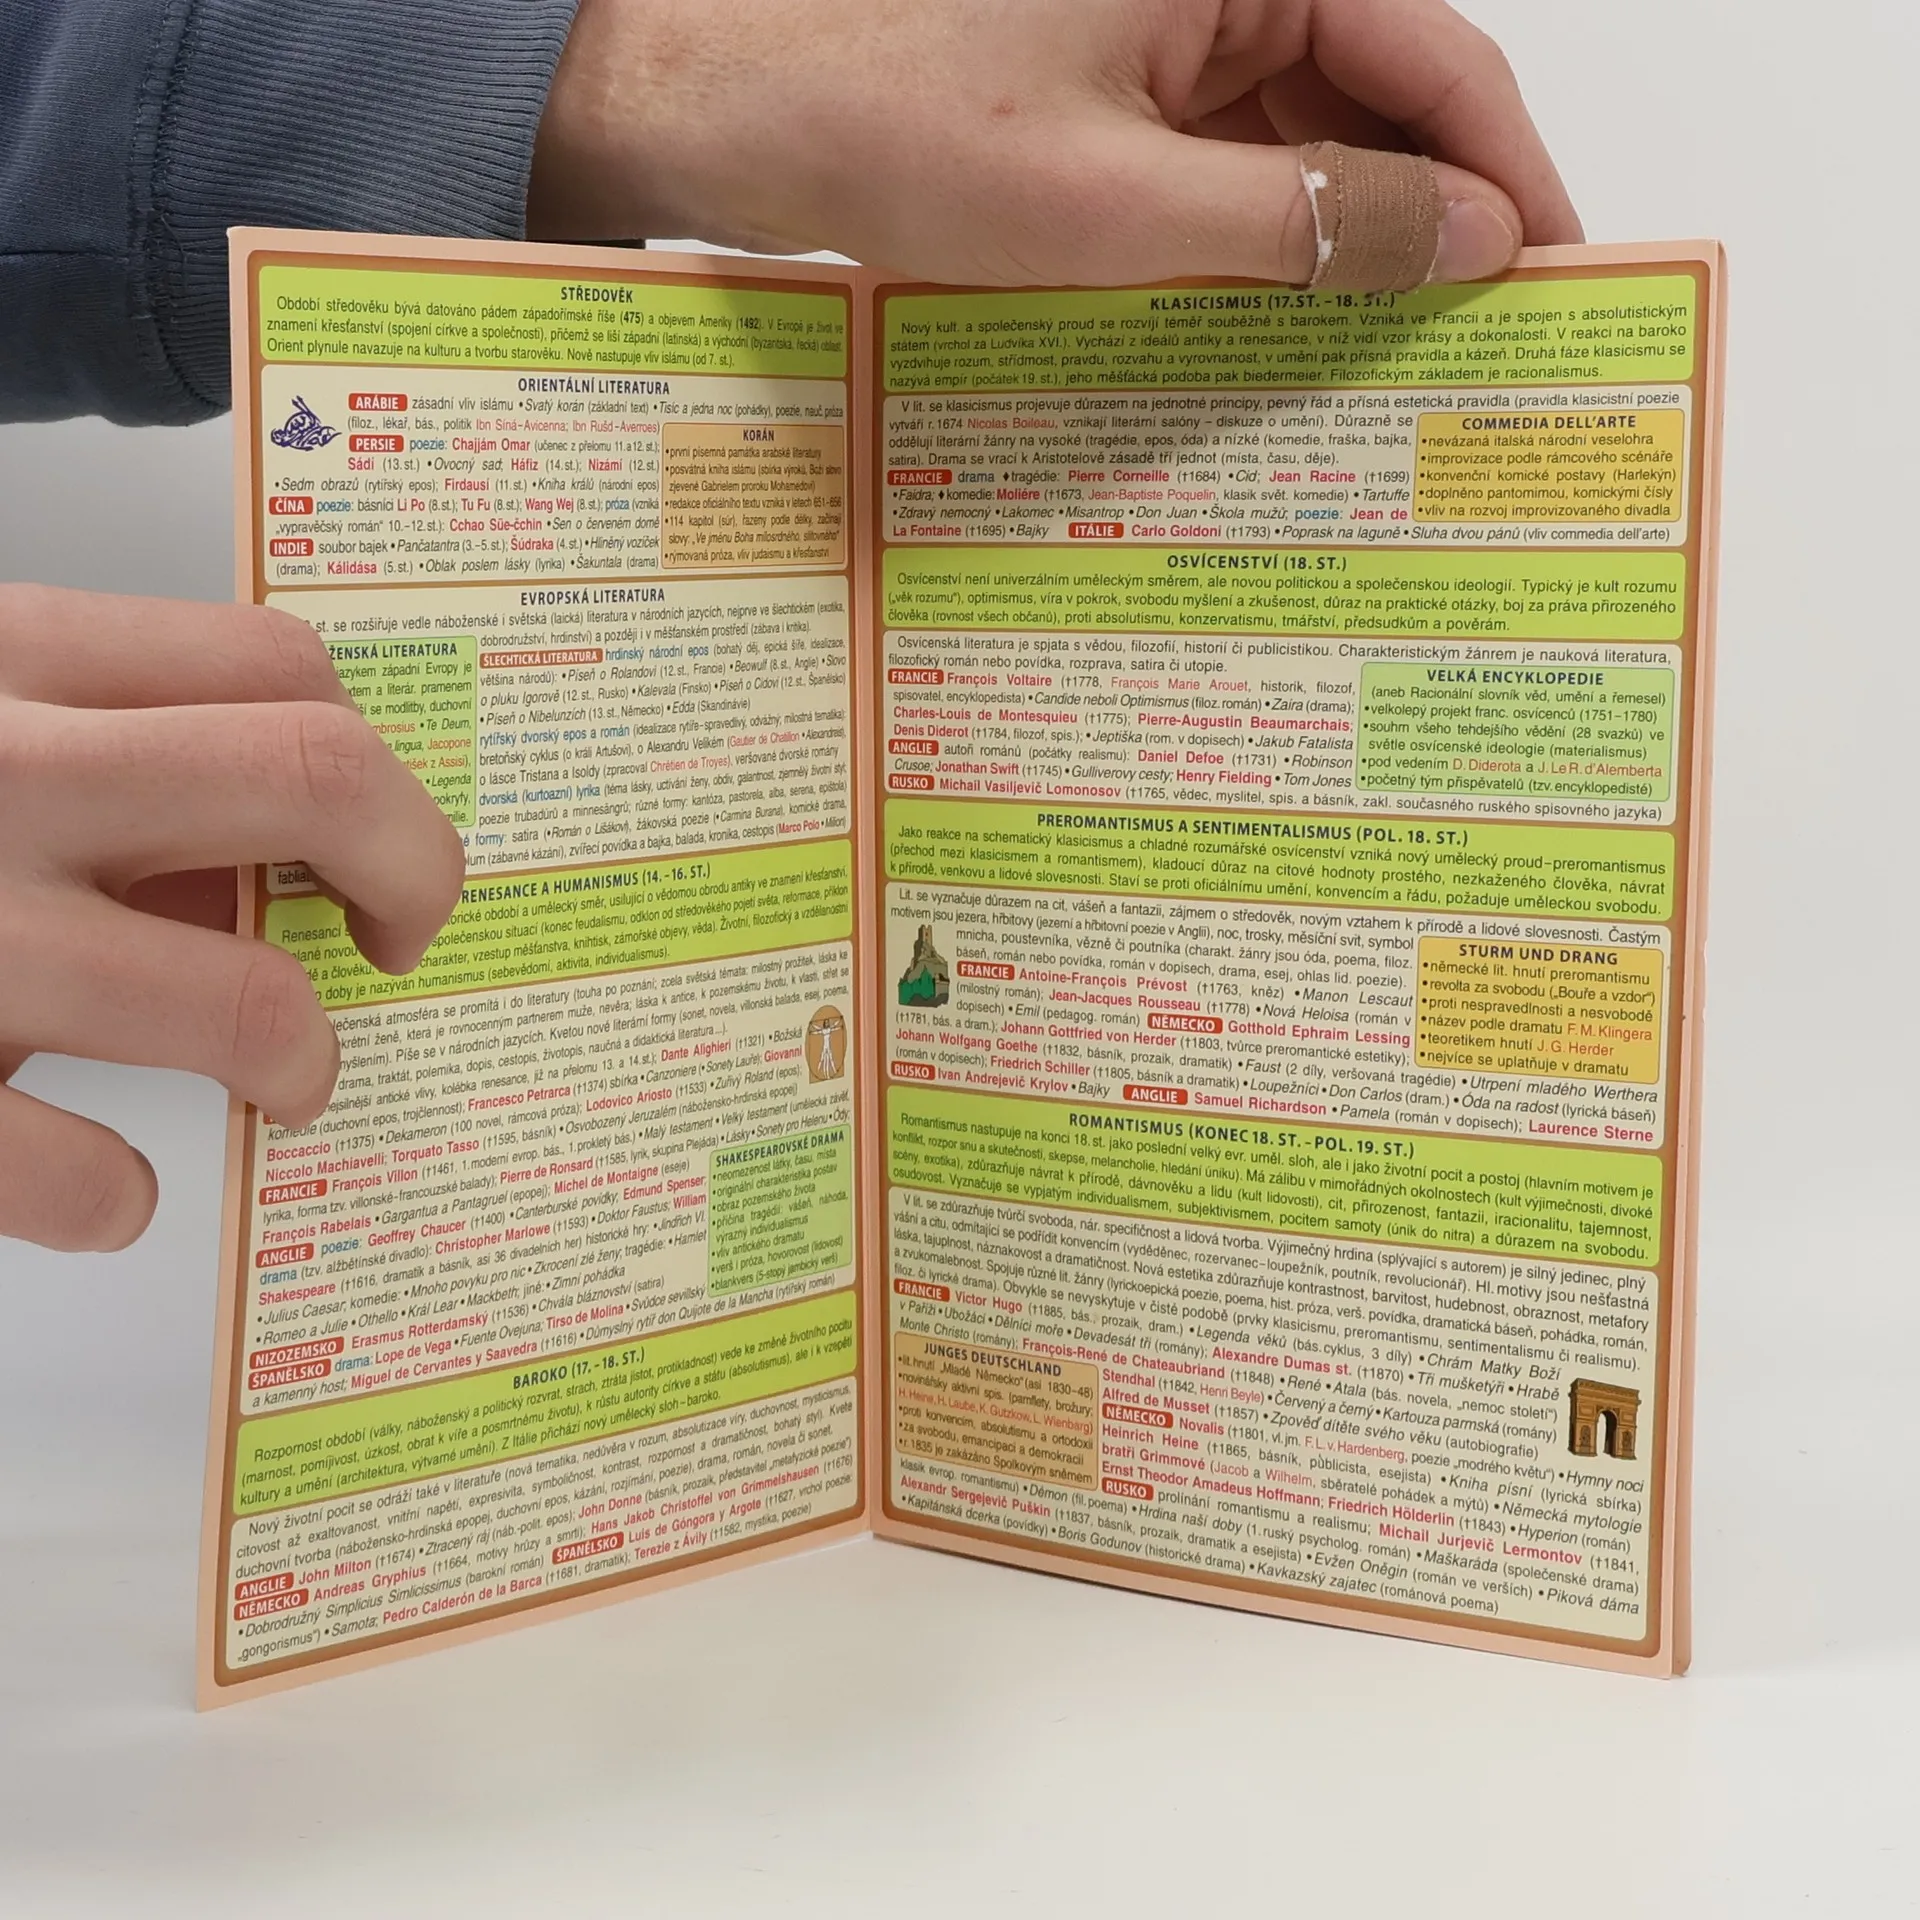 STŘEDOVĚK
Období středověku bývá datováno pádem západořímské říše (475) a objevem Ameriky (1492). V Evropě je život ve
znamení křesťanství (spojení církve a společnosti), přičemž se liší západní (latinská) a východní (byzantská, řecká) oblast.
Orient plynule navazuje na kulturu a tvorbu starověku. Nově nastupuje vliv islámu (od 7. st.).
ORIENTÁLNÍ LITERATURA
ARÁBIE zásadní vliv islámu •Svatý korán (základní text) •Tisíc a jedna noc (pohádky), poezie, nauč. próza
(filoz., lékař, bás., politik Ibn Síná-Avicenna; Ibn Rušd-Averroes)
PERSIE poezie: Chajjám Omar (učenec z přelomu 11.a 12.st.);
Sádí (13.st.) •Ovocný sad; Háfiz (14.st.); Nizámí (12.st.)
•Sedm obrazů (rytířský epos); Firdausí (11.st.) •Kniha králů (národní epos)
ČÍNA poezie: básníci Li Po (8.st.); Tu Fu (8.st.); Wang Wej (8.st.); próza (vzniká
„vypravěčský román“ 10.–12.st.): Cchao Süe-čchin •Sen o červeném domě
INDIE soubor bajek •Pančatantra (3.–5.st.); Šúdraka (4.st.) •Hliněný vozíček
(drama); Kálidása (5.st.) •Oblak poslem lásky (lyrika) •Šakuntala (drama)
KORÁN
•první písemná památka arabské literatury
•posvátná kniha islámu (sbírka výroků, Boží slovo
zjevené Gabrielem proroku Mohamedovi)
•redakce oficiálního textu vznikla v letech 651–656
•114 kapitol (súr), řazeny podle délky, začínají
slovy: „Ve jménu Boha milosrdného, slitovného“
•rýmovaná próza, vliv judaismu a křesťanství
EVROPSKÁ LITERATURA
st. se rozšiřuje vedle náboženské i světská (laická) literatura v národních jazycích, nejprve ve šlechtickém (exotika,
dobrodružství, hrdinství) a později i v měšťanském prostředí (zábava i kritika).
ŽENSKÁ LITERATURA
jazykem západní Evropy je
textem a literár. pramenem
se modlitby, duchovní
mbrosius •Te Deum,
lingua, Jacopone
tišek z Assisi),
•Legenda
pokryfy,
milie.
ŠLECHTICKÁ LITERATURA hrdinský národní epos (bohatý děj, epická šíře, idealizace,
většina národů): •Píseň o Rolandovi (12.st., Francie) •Beowulf (8.st., Anglie) •Slovo
o pluku Igorově (12.st., Rusko) •Kalevala (Finsko) •Píseň o Cidovi (12.st., Španělsko)
•Píseň o Nibelunzích (13.st., Německo) •Edda (Skandinávie)
rytířský dvorský epos a román (idealizace rytíře-spravedlivý, odvážný; milostná tematika):
bretoňský cyklus (o králi Artušovi), o Alexandru Velikém (Gautier de Chatillon •Alexandreis),
o lásce Tristana a Isoldy (zpracoval Chrétien de Troyes), veršované dvorské romány
dvorská (kurtoazní) lyrika (téma lásky, uctívání ženy, obdiv, galantnost, zjemnělý životní styl;
poezie trubadúrů a minnesängrů; různé formy: kantóza, pastorela, alba, serena, epištola)
é formy: satira (•Román o Lišákovi), žákovská poezie (•Carmina Burana), komické drama,
lum (zábavné kázání), zvířecí povídka a bajka, balada, kronika, cestopis (Marco Polo •Milion)
fablia
RENESANCE A HUMANISMUS (14. –16. ST.)
Renesancí s orické období a umělecký směr, usilující o vědomou obrodu antiky ve znamení křesťanství,
lané novou společenskou situací (konec feudalismu, odklon od středověkého pojetí světa, reformace, příklon
dě a člověku, charakter, vzestup měšťanstva, knihtisk, zámořské objevy, věda). Životní, filozofický a vzdělanostní
doby je nazýván humanismus (sebevědomí, aktivita, individualismus).
lečenská atmosféra se promítá i do literatury (touha po poznání; zcela světská témata: milostný prožitek, láska ke
krétní ženě, která je rovnocenným partnerem muže, nevěra; láska k antice, k pozemskému životu, k vlasti, střet se
myšlením). Píše se v národních jazycích. Kvetou nové literární formy (sonet, novela, villonská balada, esej, poema,
drama, traktát, polemika, dopis, cestopis, životopis, naučná a didaktická literatura...).
nejsilnější antické vlivy, kolébka renesance, již na přelomu 13. a 14.st.): Dante Alighieri (†1321) •Božská
komedie (duchovní epos, trojčlennost); Francesco Petrarca (†1374) sbírka •Canzoniere (•Sonety Lauře); Giovanni
Boccaccio (†1375) •Dekameron (100 novel, rámcová próza); Lodovico Ariosto (†1533) •Zuřivý Roland (epos);
Niccolo Machiavelli; Torquato Tasso (†1595, básník) •Osvobozený Jeruzalém (nábožensko-hrdinská epopej)
FRANCIE François Villon (†1461, 1. moderní evrop. bás., 1. prokletý bás.) •Malý testament •Velký testament (umělecká závěť,
lyrika, forma tzv. villonské-francouzské balady); Pierre de Ronsard (†1585, lyrik, skupina Plejáda) •Lásky •Sonety pro Helenu •Ódy;
François Rabelais •Gargantua a Pantagruel (epopej); Michel de Montaigne (eseje)
ANGLIE poezie: Geoffrey Chaucer (†1400) •Canterburské povídky; Edmund Spenser;
drama (tzv. alžbětinské divadlo): Christopher Marlowe (†1593) •Doktor Faustus; William
Shakespeare (†1616, dramatik a básník, asi 36 divadelních her) historické hry: •Jindřich VI.
•Julius Caesar; komedie: •Mnoho povyku pro nic •Zkrocení zlé ženy; tragédie: •Hamlet
•Romeo a Julie •Othello •Král Lear •Macbeth; jiné: •Zimní pohádka
NIZOZEMSKO Erasmus Rotterdamský (†1536) •Chvála bláznovství (satira)
ŠPANĚLSKO drama: Lope de Vega •Fuente Ovejuna; Tirso de Molina •Svůdce sevillský
a kamenný host; Miguel de Cervantes y Saavedra (†1616) •Důmyslný rytíř don Quijote de la Mancha (rytířský román)
SHAKESPEAROVSKÉ DRAMA
•neomezenost látky, času, místa
•originální charakteristika postav
•obraz pozemského života
•příčina tragédií: vášeň, náhoda,
výrazný individualismus
•vliv antického dramatu
•verš i próza, hovorovost (lidovost)
•blankvers (5-stopý jambický verš)
BAROKO (17. – 18. ST.)
Rozpornost období (války, náboženský a politický rozvrat, strach, ztráta jistot, protikladnost) vede ke změně životního pocitu
(marnost, pomíjivost, úzkost, obrat k víře a posmrtnému životu), k růstu autority církve a státu (absolutismus), ale i k vzepětí
kultury a umění (architektura, výtvarné umění). Z Itálie přichází nový umělecký sloh–baroko.
Nový životní pocit se odráží také v literatuře (nová tematika, nedůvěra v rozum, absolutizace víry, duchovnost, mysticismus,
citovost až exaltovanost, vnitřní napětí, expresivita, symboličnost, kontrast, rozpornost a dramatičnost, bohatý styl). Kvete
duchovní tvorba (nábožensko-hrdinská epopej, duchovní epos, kázání, rozjímání, poezie), drama, román, novela či sonet.
ANGLIE John Milton (†1674) •Ztracený ráj (náb.-polit. epos); John Donne (básník, prozaik, představitel „metafyzické poezie“)
NĚMECKO Andreas Gryphius (†1664, motivy hrůzy a smrti); Hans Jakob Christoffel von Grimmelshausen (†1676)
•Dobrodružný Simplicius Simlicissimus (barokní román) ŠPANĚLSKO Luis de Góngora y Argote (†1627, vrchol poezie:
„gongorismus“) •Samota; Pedro Calderón de la Barca (†1681, dramatik); Terezie z Ávily (†1582, mystika, poezie)
KLASICISMUS (17.ST. –18. ST.)
Nový kult. a společenský proud se rozvíjí téměř souběžně s barokem. Vzniká ve Francii a je spojen s absolutistickým
státem (vrchol za Ludvíka XVI.). Vychází z ideálů antiky a renesance, v níž vidí vzor krásy a dokonalosti. V reakci na baroko
vyzdvihuje rozum, střídmost, pravdu, rozvahu a vyrovnanost, v umění pak přísná pravidla a kázeň. Druhá fáze klasicismu se
nazývá empír (počátek 19.st.), jeho měšťácká podoba pak biedermeier. Filozofickým základem je racionalismus.
V lit. se klasicismus projevuje důrazem na jednotné principy, pevný řád a přísná estetická pravidla (pravidla klasicistní poezie
vytváří r.1674 Nicolas Boileau, vznikají literární salóny – diskuze o umění). Důrazně se
oddělují literární žánry na vysoké (tragédie, epos, óda) a nízké (komedie, fraška, bajka,
satira). Drama se vrací k Aristotelově zásadě tří jednot (místa, času, děje).
FRANCIE drama ♦tragédie: Pierre Corneille (†1684) •Cid; Jean Racine (†1699)
•Faidra; ♦komedie: Moliére (†1673, Jean-Baptiste Poquelin, klasik svět. komedie) •Tartuffe
•Zdravý nemocný •Lakomec •Misantrop •Don Juan •Škola mužů; poezie: Jean de
La Fontaine (†1695) •Bajky ITÁLIE Carlo Goldoni (†1793) •Poprask na laguně •Sluha dvou pánů (vliv commedia dell'arte)
COMMEDIA DELL'ARTE
•nevázaná italská národní veselohra
•improvizace podle rámcového scénáře
•konvenční komické postavy (Harlekýn)
•doplněno pantomimou, komickými čísly
•vliv na rozvoj improvizovaného divadla
OSVÍCENSTVÍ (18. ST.)
Osvícenství není univerzálním uměleckým směrem, ale novou politickou a společenskou ideologií. Typický je kult rozumu
(„věk rozumu“), optimismus, víra v pokrok, svobodu myšlení a zkušenost, důraz na praktické otázky, boj za práva přirozeného
člověka (rovnost všech občanů), proti absolutismu, konzervatismu, tmářství, předsudkům a pověrám.
Osvícenská literatura je spjata s vědou, filozofií, historií či publicistikou. Charakteristickým žánrem je nauková literatura,
filozofický román nebo povídka, rozprava, satira či utopie.
FRANCIE François Voltaire (†1778, François Marie Arouet, historik, filozof,
spisovatel, encyklopedista) •Candide neboli Optimismus (filoz. román) •Zaira (drama);
Charles-Louis de Montesquieu (†1775); Pierre-Augustin Beaumarchais;
Denis Diderot (†1784, filozof, spis.); •Jeptiška (rom. v dopisech) •Jakub Fatalista
ANGLIE autoři románů (počátky realismu): Daniel Defoe (†1731) •Robinson
Crusoe; Jonathan Swift (†1745) •Gulliverovy cesty; Henry Fielding •Tom Jones
RUSKO Michail Vasiljevič Lomonosov (†1765, vědec, myslitel, spis. a básník, zakl. současného ruského spisovného jazyka)
VELKÁ ENCYKLOPEDIE
(aneb Racionální slovník věd, umění a řemesel)
•velkolepý projekt franc. osvícenců (1751–1780)
•souhrn všeho tehdejšího vědění (28 svazků) ve
světle osvícenské ideologie (materialismus)
•pod vedením D. Diderota a J. Le R. d'Alemberta
•početný tým přispěvatelů (tzv. encyklopedisté)
PREROMANTISMUS A SENTIMENTALISMUS (POL. 18. ST.)
Jako reakce na schematický klasicismus a chladné rozumářské osvícenství vzniká nový umělecký proud–preromantismus
(přechod mezi klasicismem a romantismem), kladoucí důraz na citové hodnoty prostého, nezkaženého člověka, návrat
k přírodě, venkovu a lidové slovesnosti. Staví se proti oficiálnímu umění, konvencím a řádu, požaduje uměleckou svobodu.
Lit. se vyznačuje důrazem na cit, vášeň a fantazii, zájmem o středověk, novým vztahem k přírodě a lidové slovesnosti. Častým
motivem jsou jezera, hřbitovy (jezerní a hřbitovní poezie v Anglii), noc, trosky, měsíční svit, symbol
mnicha, poustevníka, vězně či poutníka (charakt. žánry jsou óda, poema, filoz.
báseň, román nebo povídka, román v dopisech, drama, esej, ohlas lid. poezie).
FRANCIE Antoine-François Prévost (†1763, kněz) •Manon Lescaut
(milostný román); Jean-Jacques Rousseau (†1778) •Nová Heloisa (román v
dopisech) •Emil (pedagog. román) NĚMECKO Gotthold Ephraim Lessing
(†1781, bás. a dram.); Johann Gottfried von Herder (†1803, tvůrce preromantické estetiky);
Johann Wolfgang Goethe (†1832, básník, prozaik, dramatik) •Faust (2 díly, veršovaná tragédie) •Utrpení mladého Werthera
(román v dopisech); Friedrich Schiller (†1805, básník a dramatik) •Loupežníci •Don Carlos (dram.) •Óda na radost (lyrická báseň)
RUSKO Ivan Andrejevič Krylov •Bajky ANGLIE Samuel Richardson •Pamela (román v dopisech); Laurence Sterne
STURM UND DRANG
•německé lit. hnutí preromantismu
•revolta za svobodu („Bouře a vzdor“)
•proti nespravedlnosti a nesvobodě
•název podle dramatu F. M. Klingera
•teoretikem hnutí J. G. Herder
•nejvíce se uplatňuje v dramatu
ROMANTISMUS (KONEC 18. ST. – POL. 19. ST.)
Romantismus nastupuje na konci 18.st. jako poslední velký evr. uměl. sloh, ale i jako životní pocit a postoj (hlavním motivem je
konflikt, rozpor snu a skutečnosti, skepse, melancholie, hledání úniku). Má zálibu v mimořádných okolnostech (kult výjimečnosti, divoké
scény, exotika), zdůrazňuje návrat k přírodě, dávnověku a lidu (kult lidovosti), cit, přirozenost, fantazii, iracionalitu, tajemnost,
osudovost. Vyznačuje se vypjatým individualismem, subjektivismem, pocitem samoty (únik do nitra) a důrazem na svobodu.
V lit. se zdůrazňuje tvůrčí svoboda, nár. specifičnost a lidová tvorba. Výjimečný hrdina (splývající s autorem) je silný jedinec, plný
vášní a citu, odmítající se podřídit konvencím (vyděděnec, rozervanec–loupežník, poutník, revolucionář). Hl. motivy jsou nešťastná
láska, tajuplnost, náznakovost a dramatičnost. Nová estetika zdůrazňuje kontrastnost, barvitost, hudebnost, obraznost, metafory
a zvukomalebnost. Spojuje různé lit. žánry (lyrickoepická poezie, poema, hist. próza, verš. povídka, dramatická báseň, pohádka, román,
filoz. či lyrické drama). Obvykle se nevyskytuje v čisté podobě (prvky klasicismu, preromantismu, sentimentalismu či realismu).
FRANCIE Victor Hugo (†1885, bás., prozaik, dram.) •Legenda věků (bás.cyklus, 3 díly) •Chrám Matky Boží
v Paříži •Ubožáci •Dělníci moře •Devadesát tři (romány); Alexandre Dumas st. (†1870) •Tři mušketýři •Hrabě
Monte Christo (romány); François-René de Chateaubriand (†1848) •René •Atala (bás. novela, „nemoc století“)
Stendhal (†1842, Henri Beyle) •Červený a černý •Kartouza parmská (romány)
Alfred de Musset (†1857) •Zpověď dítěte svého věku (autobiografie)
NĚMECKO Novalis (†1801, vl.jm. F. L. v. Hardenberg, poezie „modrého květu“) •Hymny noci
Heinrich Heine (†1865, básník, publicista, esejista) •Kniha písní (lyrická sbírka)
bratři Grimmové (Jacob a Wilhelm, sběratelé pohádek a mýtů) •Německá mytologie
Ernst Theodor Amadeus Hoffmann; Friedrich Hölderlin (†1843) •Hyperion (román)
RUSKO prolínání romantismu a realismu; Michail Jurjevič Lermontov (†1841,
klasik evrop. romantismu) •Démon (fil. poema) •Hrdina naší doby (1.ruský psycholog. román) •Maškaráda (společenské drama)
Alexandr Sergejevič Puškin (†1837, básník, prozaik, dramatik a esejista) •Evžen Oněgin (román ve verších) •Piková dáma
•Kapitánská dcerka (povídky) •Boris Godunov (historické drama) •Kavkazský zajatec (románová poema)
JUNGES DEUTSCHLAND
•lit.hnutí „Mladé Německo“ (asi 1830–48)
•novinářsky aktivní spis. (pamflety, brožury;
H. Heine, H. Laube, K. Gutzkow, L. Wienbarg)
•proti konvencím, absolutismu a ortodoxii
•za svobodu, emancipaci a demokracii
•r.1835 je zakázáno Spolkovým sněmem